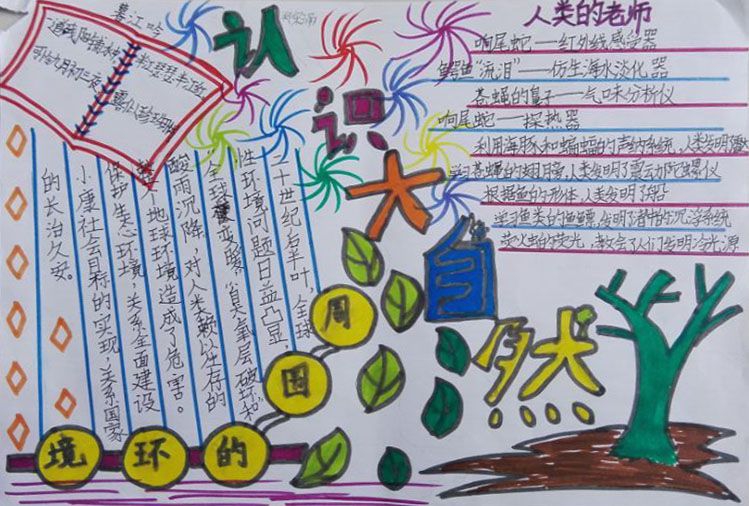 暮江吟
一道残阳铺水中
半江瑟瑟半江红
可怜九月初三夜
认识大自然
人类的老师
响尾蛇——红外线感受器
鳄鱼“流泪”——仿生海水淡化器
苍蝇的鼻子——气味分析仪
响尾蛇——探热器
利用海豚和蝙蝠的声纳系统,人类发明
学习苍蝇的翅膀,人类发明了震动陀螺仪
根据鱼的形体,人类发明了船
学习鱼类的鱼鳔,发明了潜艇沉浮系统
荧火虫的荧光,教会了人们发明冷光源
二十世纪后半叶,全球
性环境问题日益凸显,
全球变暖、臭氧层破坏和
酸雨沉降,对人类赖以生存的
整个地球环境造成了危害。
保护生态环境,关系全面建设
小康社会目标的实现,关系国家
的长治久安。
周围的环境